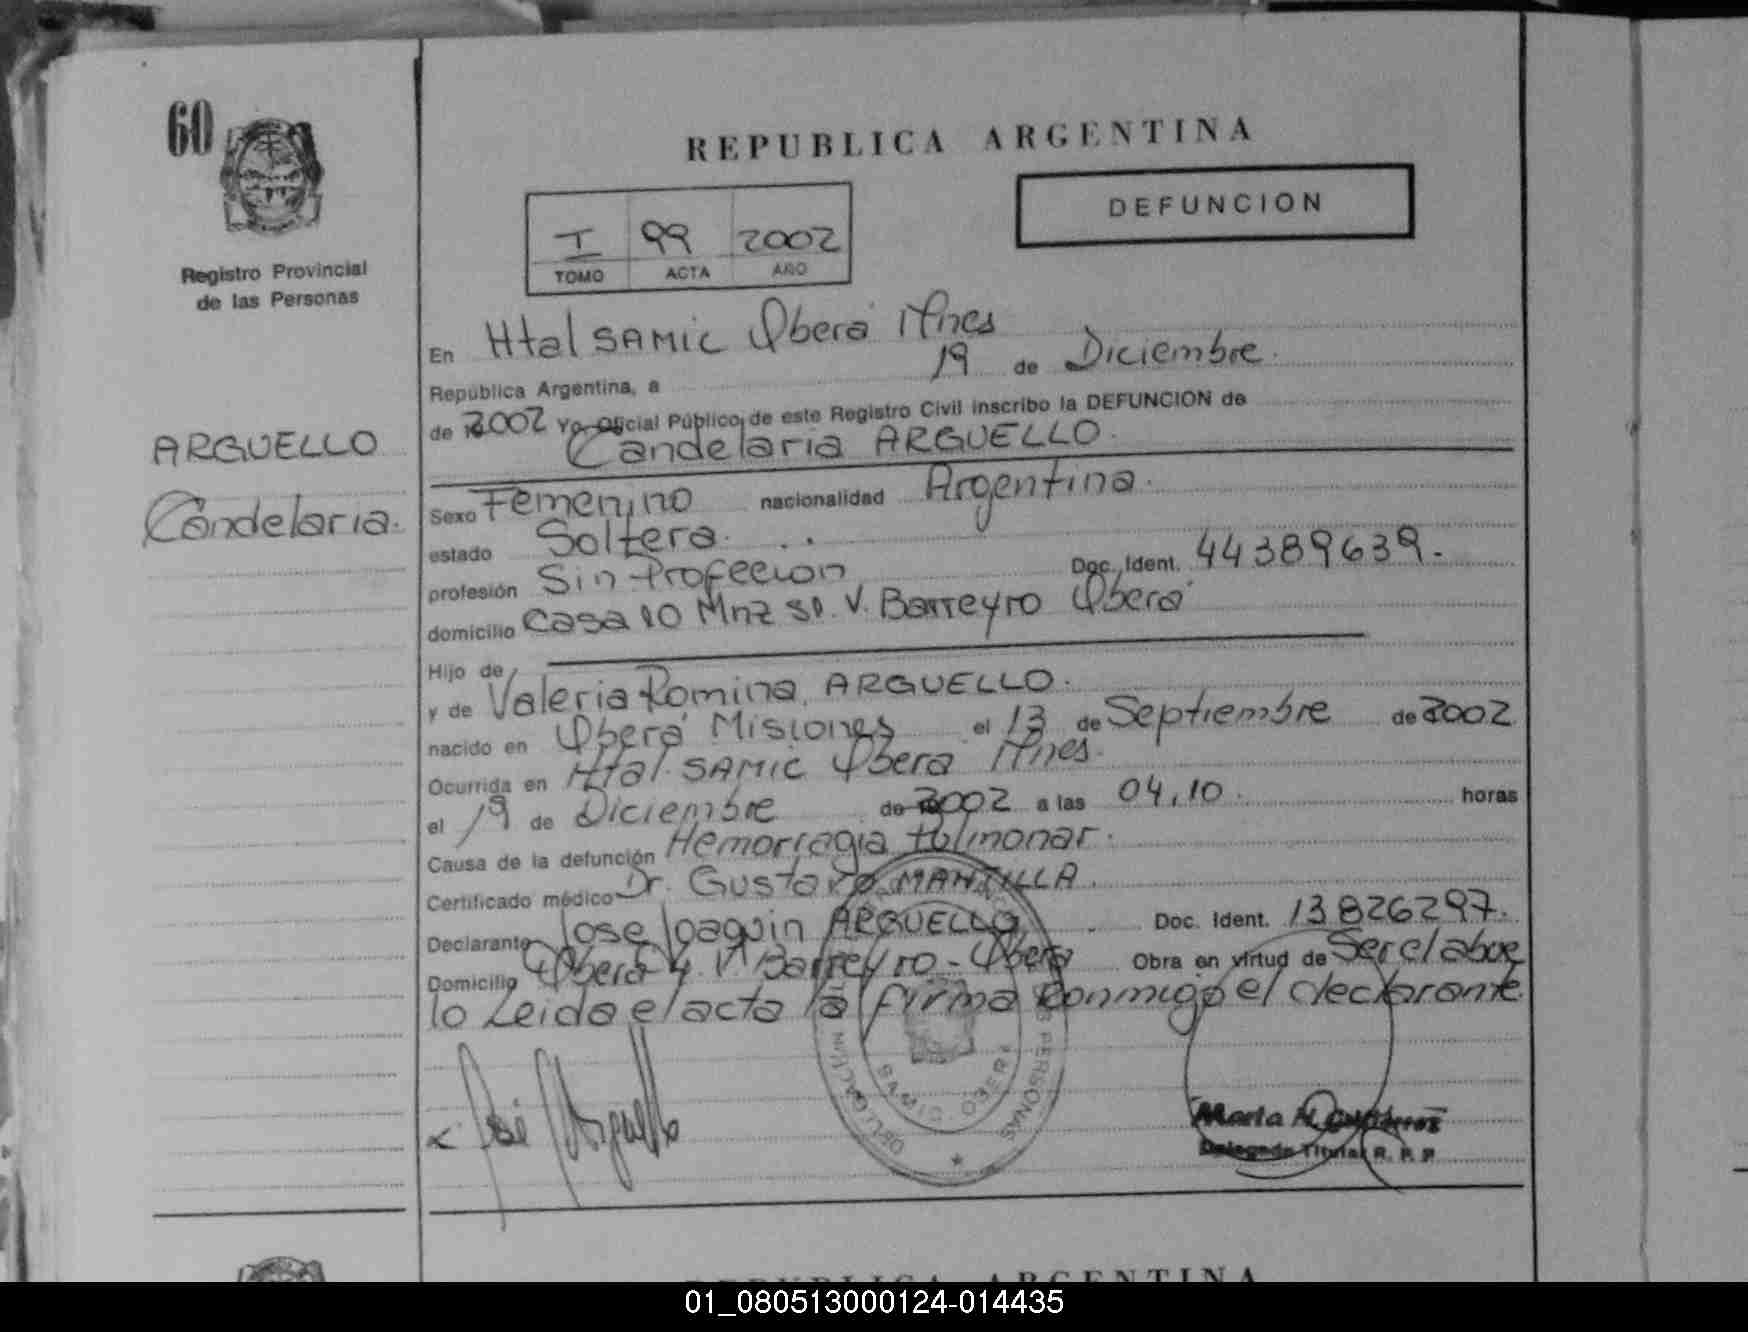 60
Registro Provincial
de las Personas
ARGUELLO
Candelaria.
REPUBLICA ARGENTINA
DEFUNCION
I 99 2002
TOMO ACTA AÑO
En Htal SAMIC Oberá Mnes
República Argentina, a 19 de Diciembre.
de 2002 Yo Oficial Público de este Registro Civil inscribo la DEFUNCION de
Candelaria ARGUELLO.
Sexo Femenino nacionalidad Argentina.
estado Soltera.
profesión Sin Profecion Doc. Ident. 44389639.
domicilio Casa 10 Mnz V. Barreyro Oberá
Hijo de
y de Valeria Romina ARGUELLO.
nacido en Oberá Misiones el 13 de Septiembre de 2002
Ocurrida en Htal. SAMIC Oberá Mnes.
el 19 de Diciembre de 2002 a las 04,10. horas
Causa de la defunción Hemorragia Pulmonar.
Certificado médico Dr. Gustavo MANTILLA.
Declarante Jose Joaquin ARGUELLO. Doc. Ident. 13826297.
Domicilio Oberá V. Barreyro - Oberá Obra en virtud de Ser el abue
lo Leida el acta la firma conmigo el declarante.
José Arguello
PERSONAS
SAMIC OBERA
Marta N. Gutierrez
Delegada Titular R. P. P.
REPUBLICA ARGENTINA
01_080513000124-014435